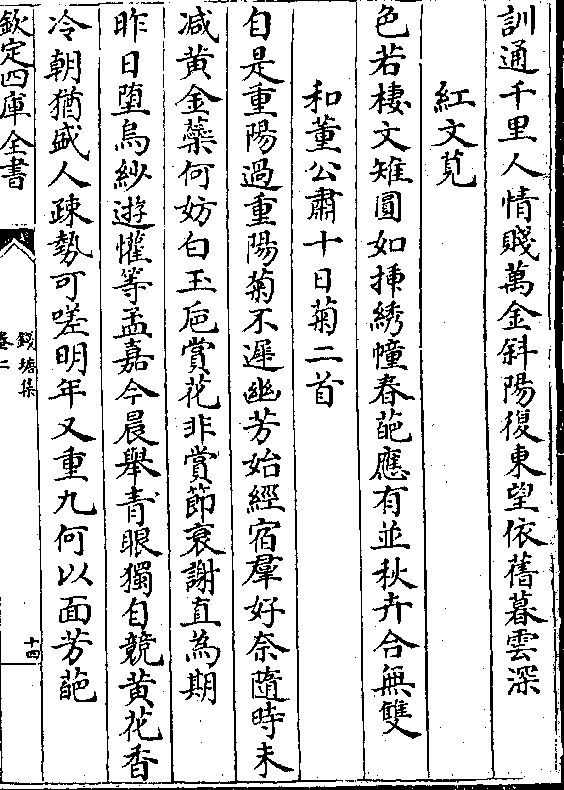 訓通千里人情賤萬金斜陽復東望依舊暮雲深
紅文莧
色若棲文雉圓如揷綉幢春葩應有並秋卉合無雙
和董公肅十日菊二首
自是重陽過重陽菊不遲幽芳始經宿羣好奈隨時未
减黄金蘂何妨白玉巵賞花非賞節衰謝直為期
昨日墮烏紗遊懽等孟嘉今晨舉青眼獨自競黄花香
冷朝猶盛人疎勢可嗟明年又重九何以面芳葩
欽定四庫全書
錢塘集
卷二
十四